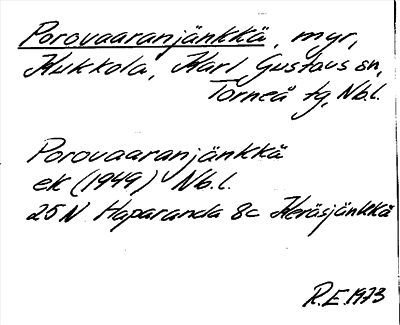 Porovaaranjänkkä, myr,
Kukkola, Karl Gustavs sn,
Torneå tg, Nb.l.
Porovaaranjänkkä
ek (1949) Nb.l.
25N Haparanda 8c Keräsjänkkä
R.E. 1973